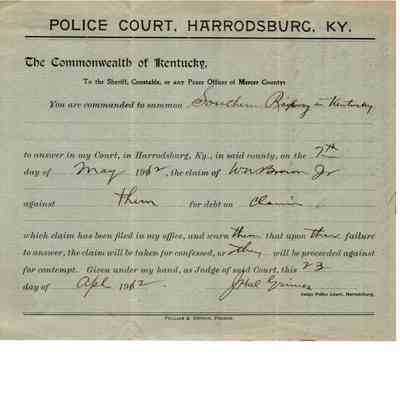 POLICE COURT, HARRODSBURG, KY.
The Commonwealth of Kentucky,
To the Sheriff, Constable, or any Peace Officer of Mercer County:
You are commanded to summon Southern Railway in Kentucky
to answer in my Court, in Harrodsburg, Ky., in said county, on the 7th
day of May 1912, the claim of Jr
against them for debt on Claim
which claim has been filed in my office, and warn them that upon their failure
to answer, the claim will be taken for confessed, or they will be proceeded against
for contempt. Given under my hand, as Judge of said Court, this 23
day of Apl 1912. Grimes
Judge Police Court, Harrodsburg.